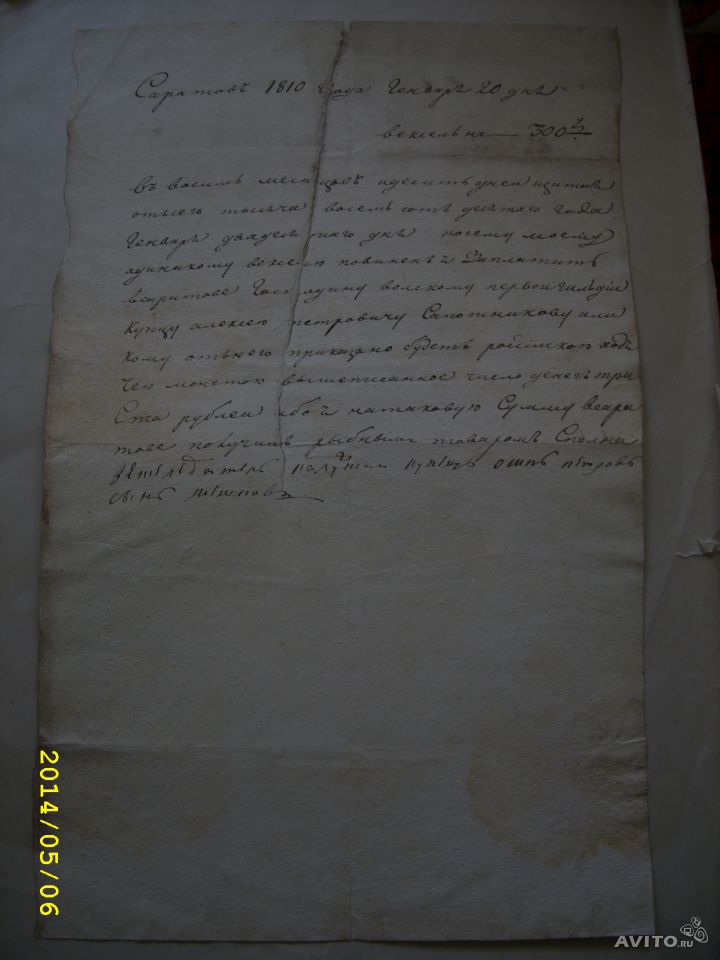 Саратовъ 1810 года Генваря 20 дня
вексель на 300 р
въ восимь месяцовъ идесить дней щитая
отъсего тысяча восемь сотъ десятаго года
Генваря двадцатаго дня посему моему
адинакому векселю повиненъ я заплатить
Господину волскому первои гильдии
Купцу алексею петровичу Сапожникову или
кому отънего приказано будетъ российскою ходя
чею монетою вышеписанное число денегъ три
Ста рублеи ибо я натаковую Сумму
получилъ рыбнымъ товаромъ Сполна
купецъ осипъ петровъ
сынъ
2014/05/06
AVITO.ru